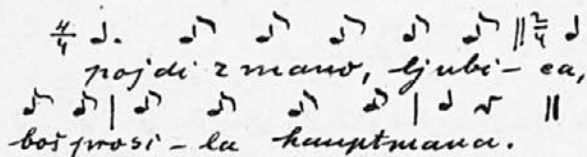 4/4 2/4
pojdi z mano, ljubi-ca,
boš prosi-la hauptmana.